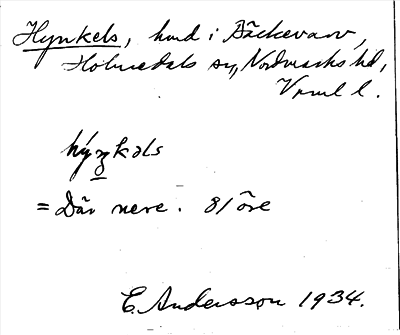 Hynkels, hmd i Bäckevarv,
Holmedals sn, Nordmarks hd,
Vrml l.
hýŋkəls
= Där nere. 81 öre
E. Andersson 1934.